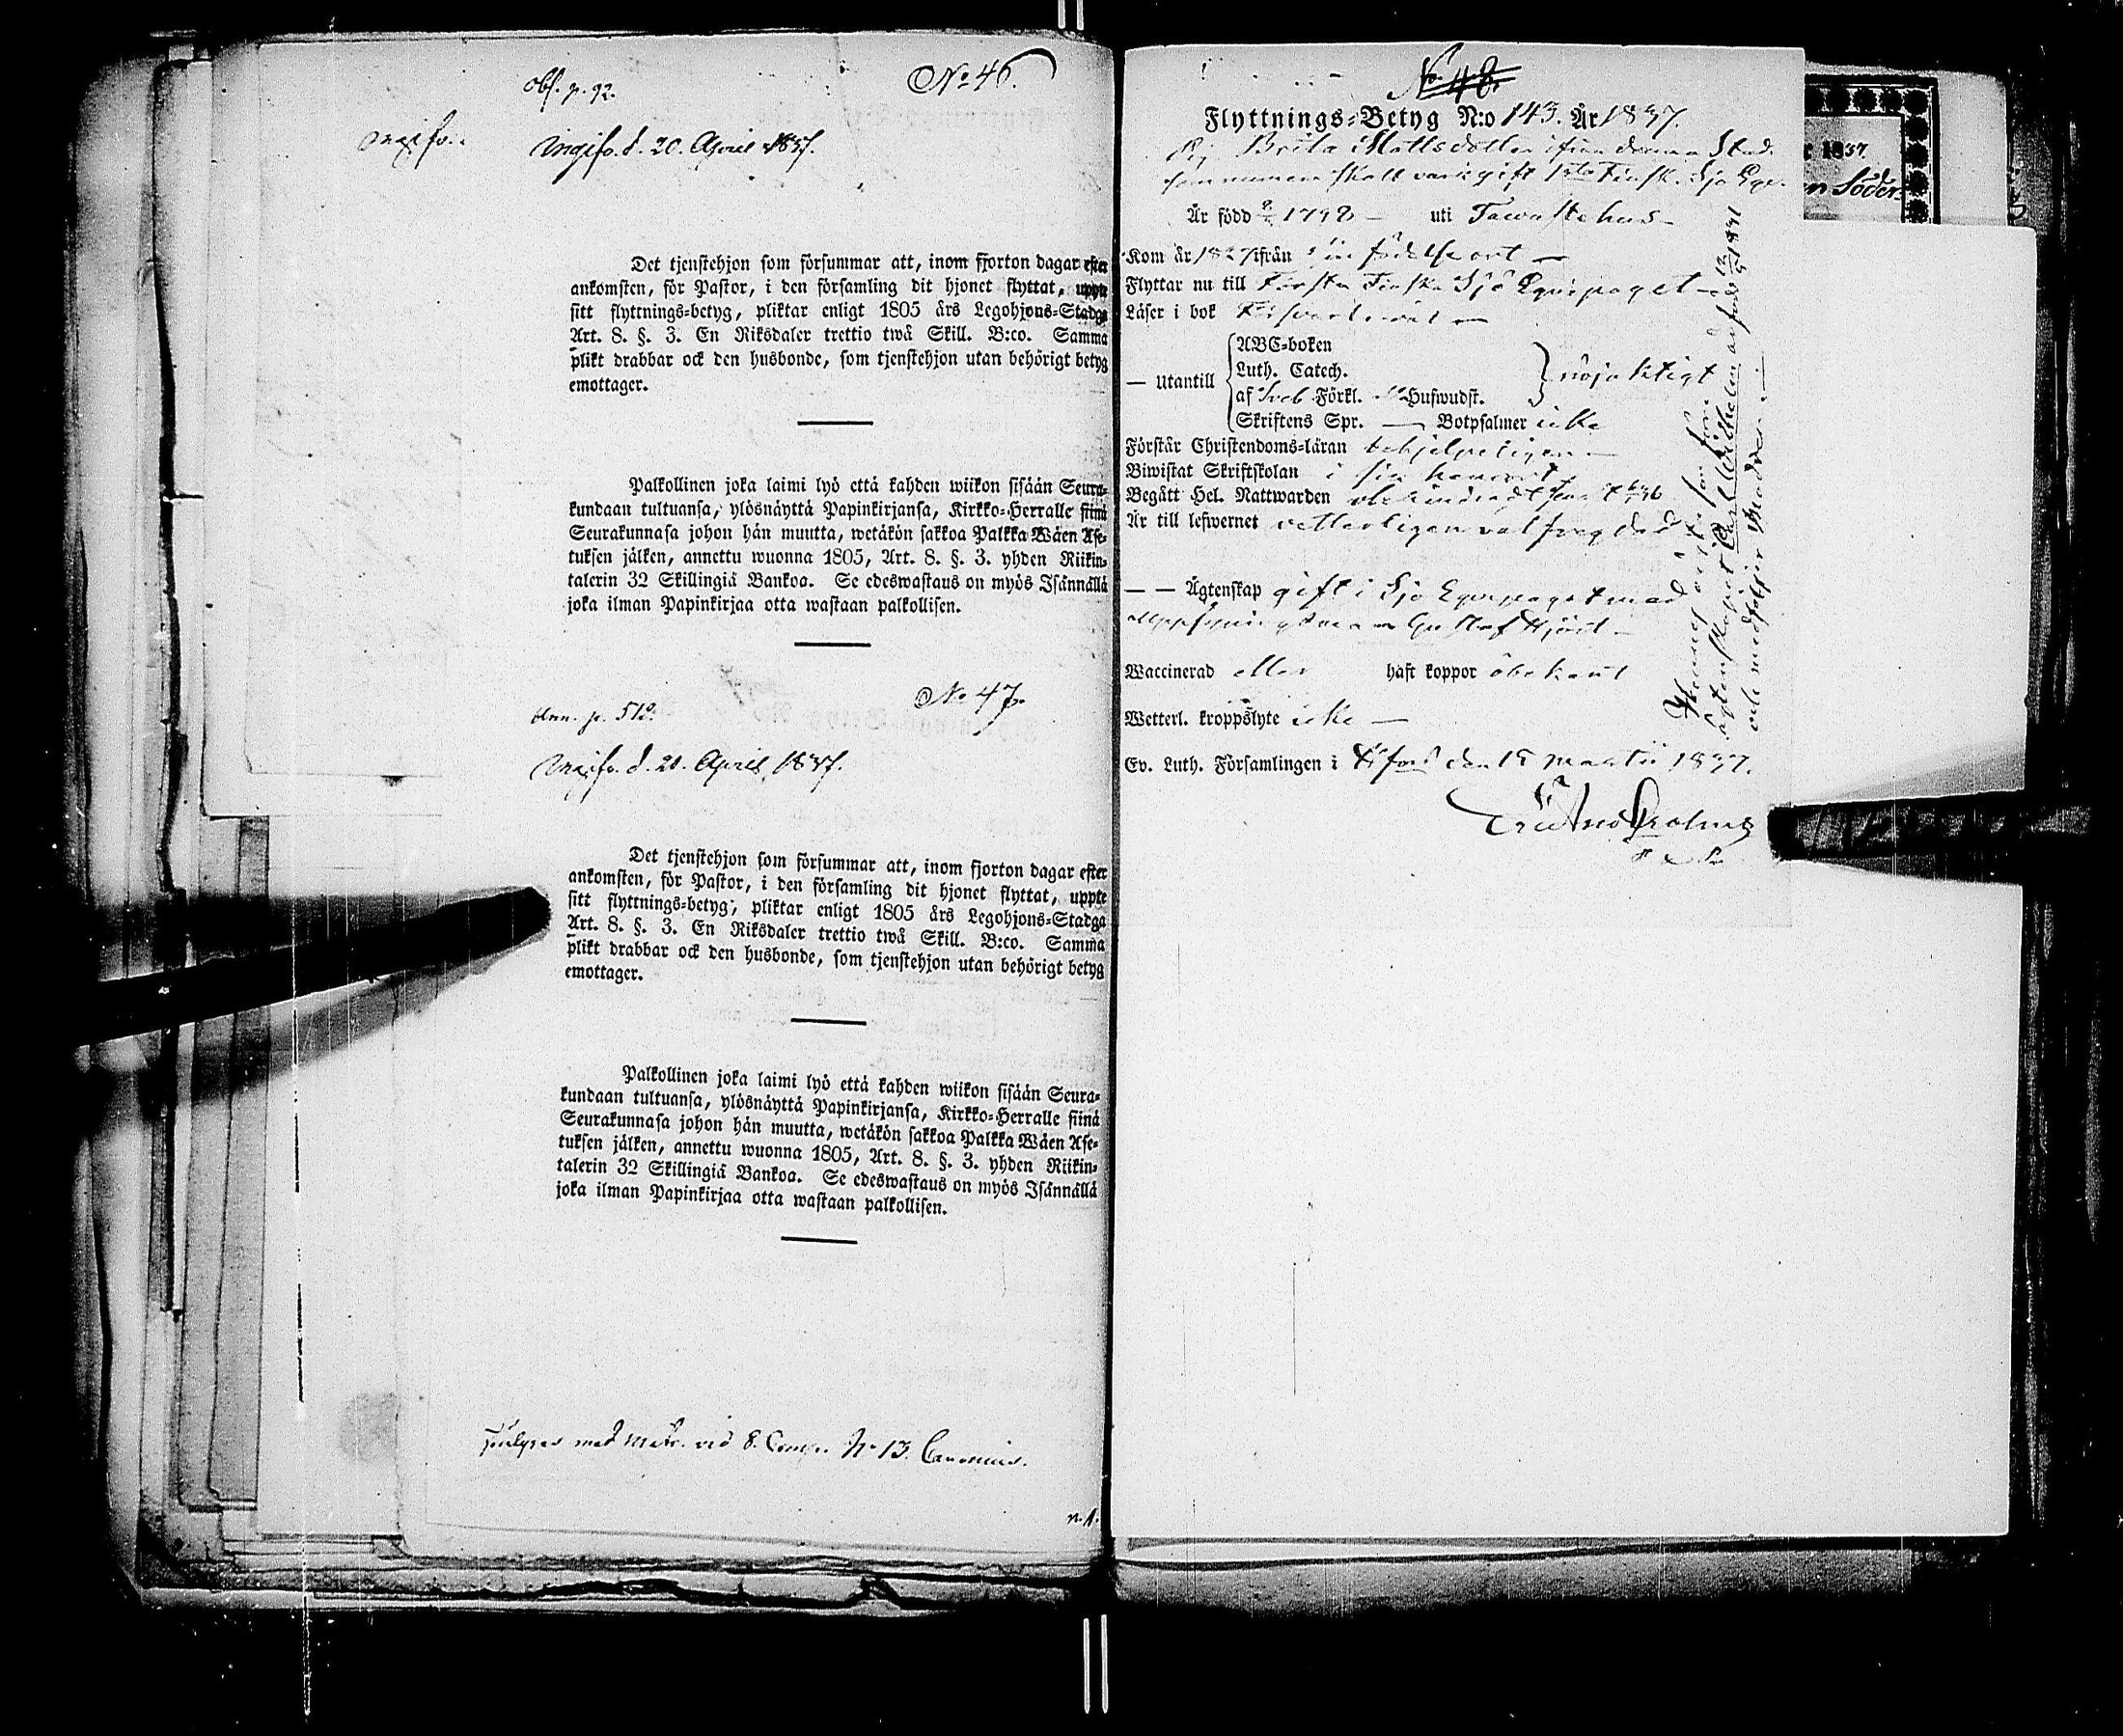 Obs. p. 92.
No 46.
Ingifv. d. 20. April 1837.
Det tjenstehjon som försummar att, inom fjorton dagar efter
ankomsten, för Pastor, i den församling dit hjonet flyttat, uppte
sitt flyttnings-betyg, pliktar enligt 1805 års Legohjons-Stadga
Art. 8. §. 3. En Riksdaler trettio twå Skill. B:co. Samma
plikt drabbar ock den husbonde, som tjenstehjon utan behörigt betyg
emottager.
Palkollinen joka laimi lyö että kahden wiikon sisään Seura-
kundaan tultuansa, ylösnäyttä Papinkirjansa, Kirkko-Herralle siinä
Seurakunnasa johon hän muutta, wetäkön sakkoa Palkka Wäen Ase-
tuksen jälken, annettu wuonna 1805, Art. 8. §. 3. yhden Riikin-
talerin 32 Skillingiä Bankoa. Se edeswastaus on myös Isännällä
joka ilman Papinkirjaa otta wastaan palkollisen.
No 47.
p. 512.
Ingifv. d. 20. April 1837.
Det tjenstehjon som försummar att, inom fjorton dagar efter
ankomsten, för Pastor, i den församling dit hjonet flyttat, uppte
sitt flyttnings-betyg, pliktar enligt 1805 års Legohjons-Stadga
Art. 8. §. 3. En Riksdaler trettio twå Skill. B:co. Samma
plikt drabbar ock den husbonde, som tjenstehjon utan behörigt betyg
emottager.
Palkollinen joka laimi lyö että kahden wiikon sisään Seura-
kundaan tultuansa, ylösnäyttä Papinkirjansa, Kirkko-Herralle siinä
Seurakunnasa johon hän muutta, wetäkön sakkoa Palkka Wäen Ase-
tuksen jälken, annettu wuonna 1805, Art. 8. §. 3. yhden Riikin-
talerin 32 Skillingiä Bankoa. Se edeswastaus on myös Isännällä
joka ilman Papinkirjaa otta wastaan palkollisen.
med vid 8. Comp. No 13.
No 48.
Flyttnings-Betyg N:o 143. År 1837.
Pig. Brita Mattsdotter ifrån denna Stad.
skall vara gift 1sta Finsk. Sjö Eqv.
Är född 1798 — uti Tawastehus —
Kom år 1827 ifrån sin födelseort —
Flyttar nu till Första Finska Sjö Equipaget —
Läser i bok
— utantill
ABC-boken
Luth. Catech.
af Sveb Förkl. Hufwudst.
nöjaktigt
Skriftens Spr. — Botpsalmer icke
Förstår Christendoms-läran behjelpeligen —
Biwistat Skriftskolan i sin hemort
Begått Hel. Nattwarden obehindradt
Är till lefwernet vetterligen välfrejdad
— — Ägtenskap gift i Sjö Equipaget med
Gustaf Hjort —
Waccinerad eller haft koppor obekant
Wetterl. kroppslyte icke —
Ev. Luth. Församlingen i den 18 Martii 1837.
Hennes
ägtenskapet Carl Wilhelm
och medföljer Modren —
r 1837.
n Söder-